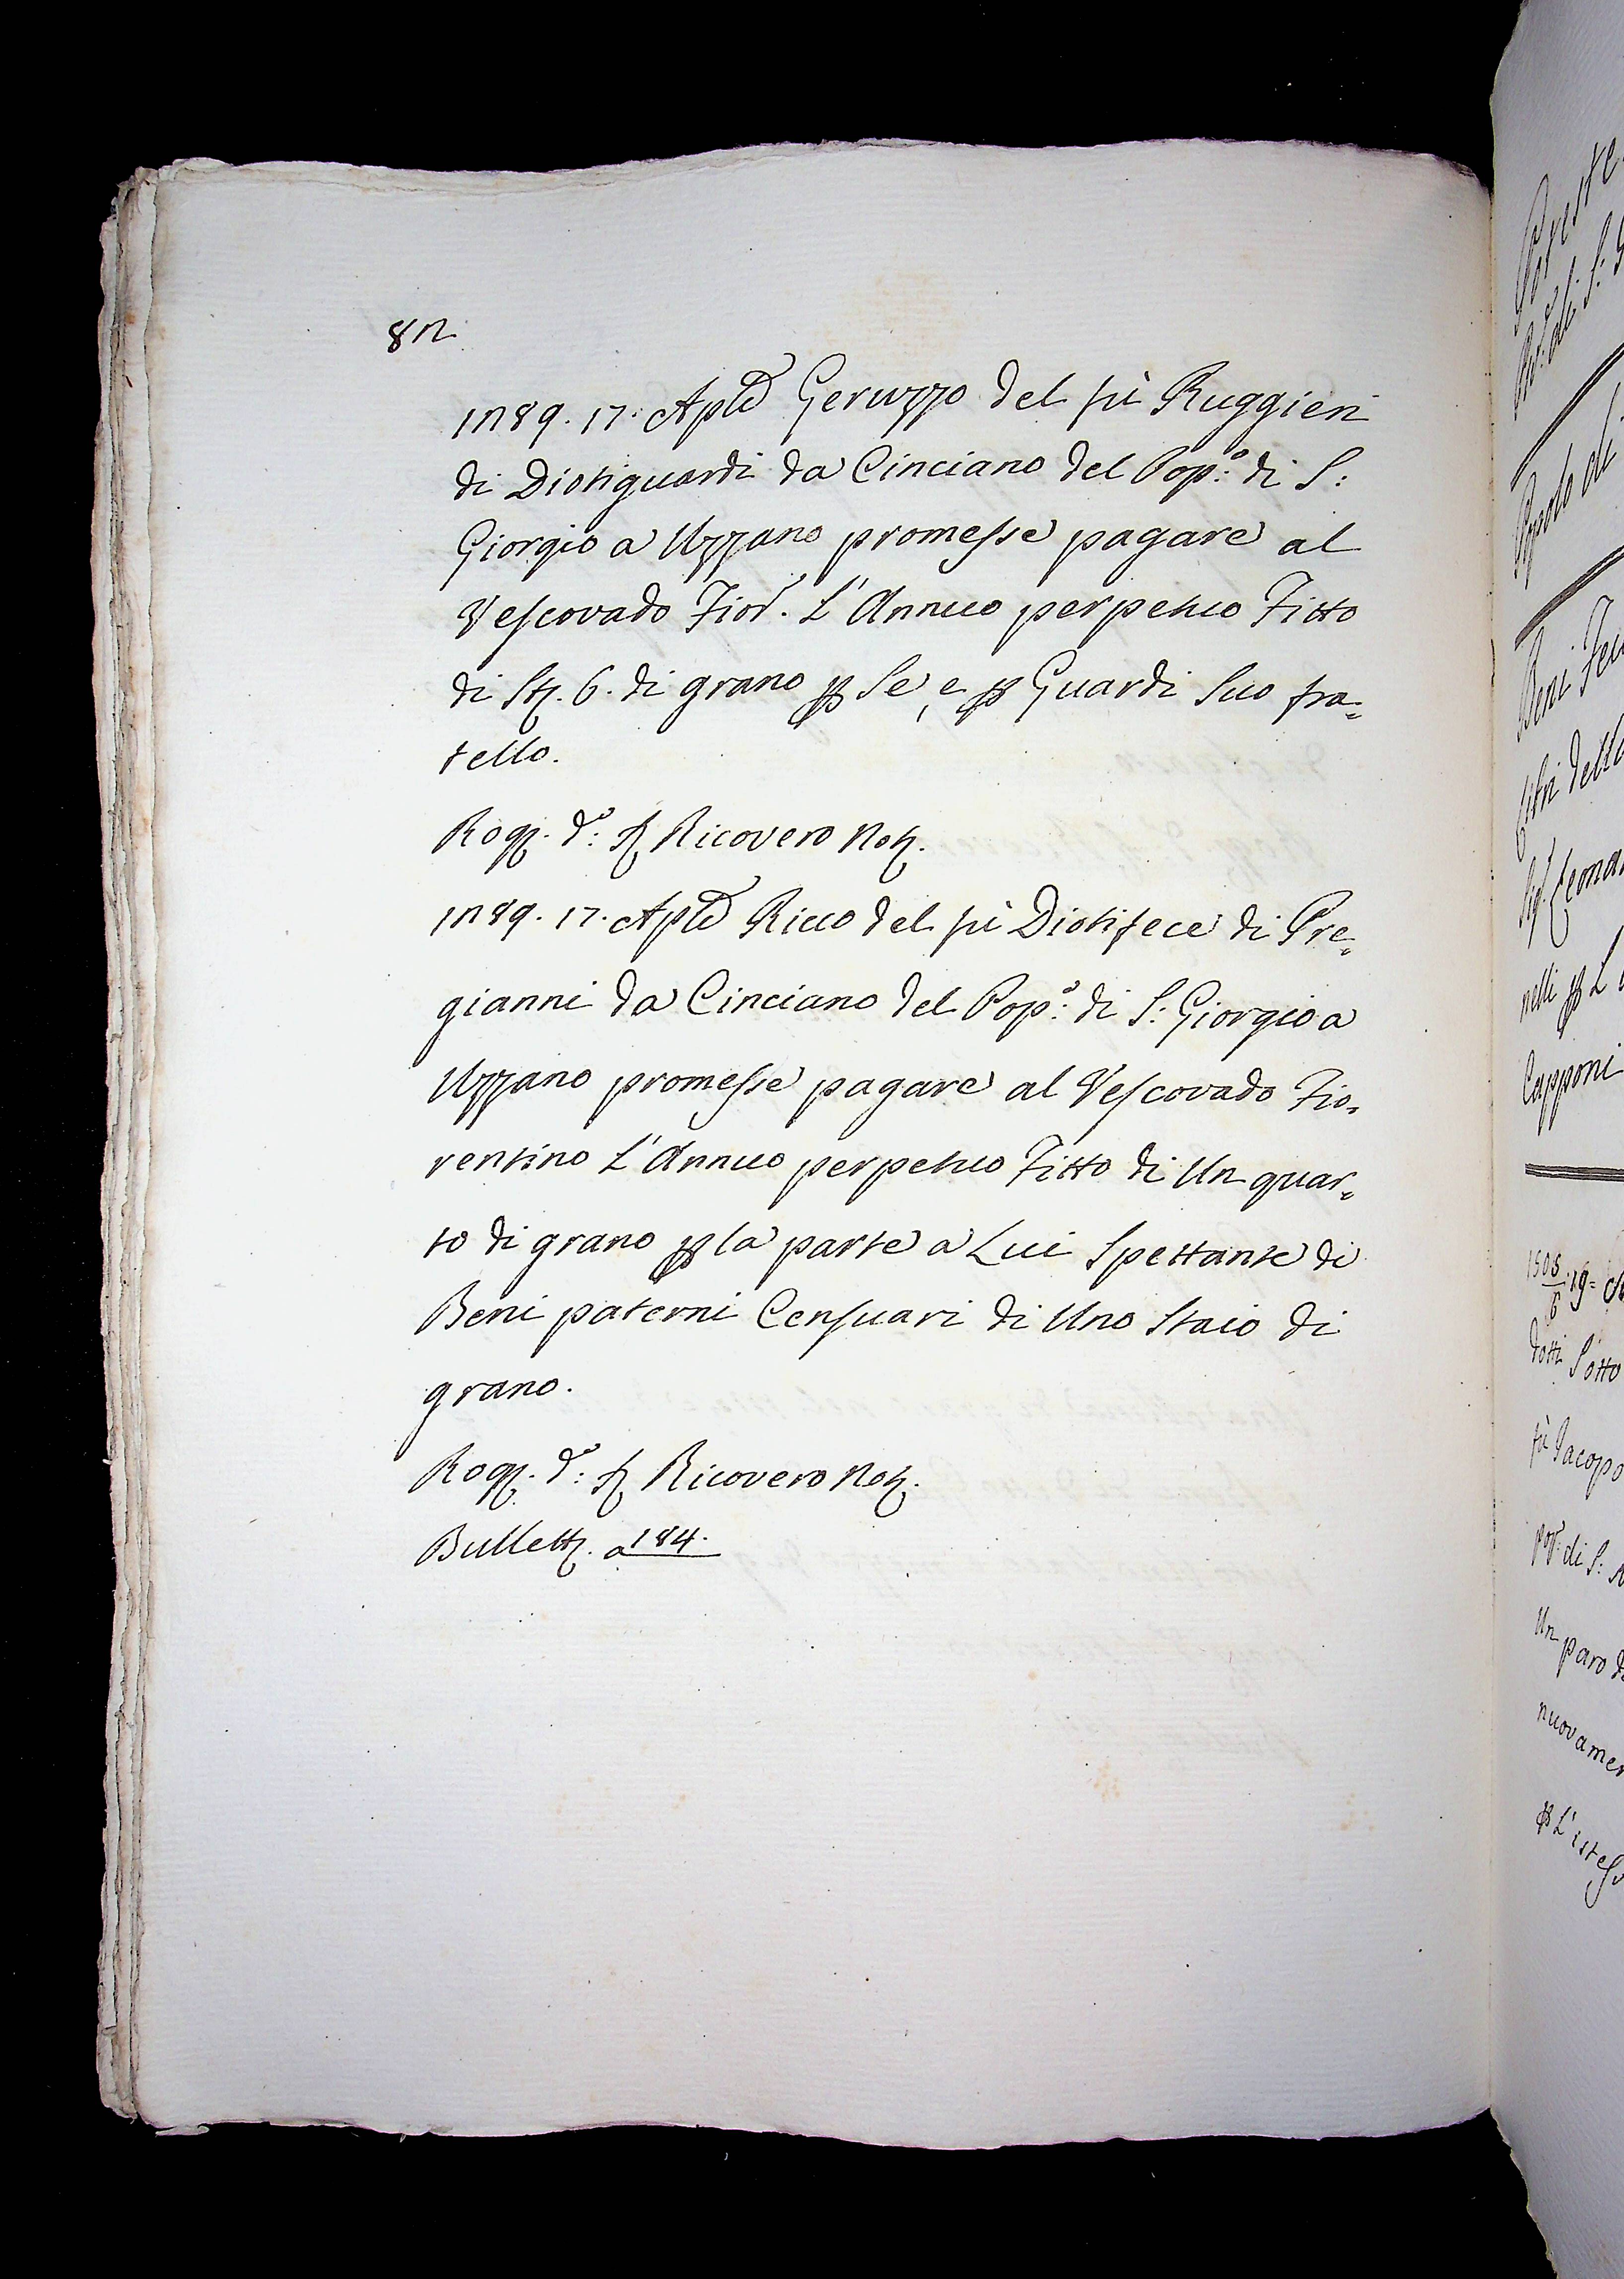 82
1289. 17. Aple Geruzzo del fù Ruggieri
di Diotiguardi da Cinciano del Pop:º di S:
Giorgio a Uzzano promesse pagare al
Vescovado Fior. L'Annuo perpetuo Fitto
di Sta. 6. di grano p Se, e p Guardi Suo fra=
tello.
Rog. dº: Sr Ricovero Not.
1289. 17. Aple Ricco del fù Diotifece di Pre=
gianni da Cinciano del Popº: di S: Giorgio a
Uzzano promesse pagare al Vescovado Fio=
rentino L'Annuo perpetuo Fitto di Un quar=
to di grano p la parte a Lui Spettante di
Beni paterni Censuari di Uno Staio di
grano.
Rog. dº: Sr Ricovero Not.
Bullett. a 184.
Beni
della
nelli p L
Capponi
1505/6 19=
dotti Sotto
fù Jacopo
pop: di S:
Un paro
nuovamen
p L'istess